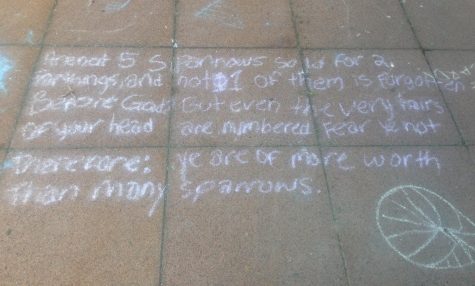 Are not 5 Sparrows sold for 2
farthings, and not 1 of them is forgotten
Before God? But even the very hairs
of your head are numbered Fear ye not
therefore: ye are of more worth
than many sparrows.